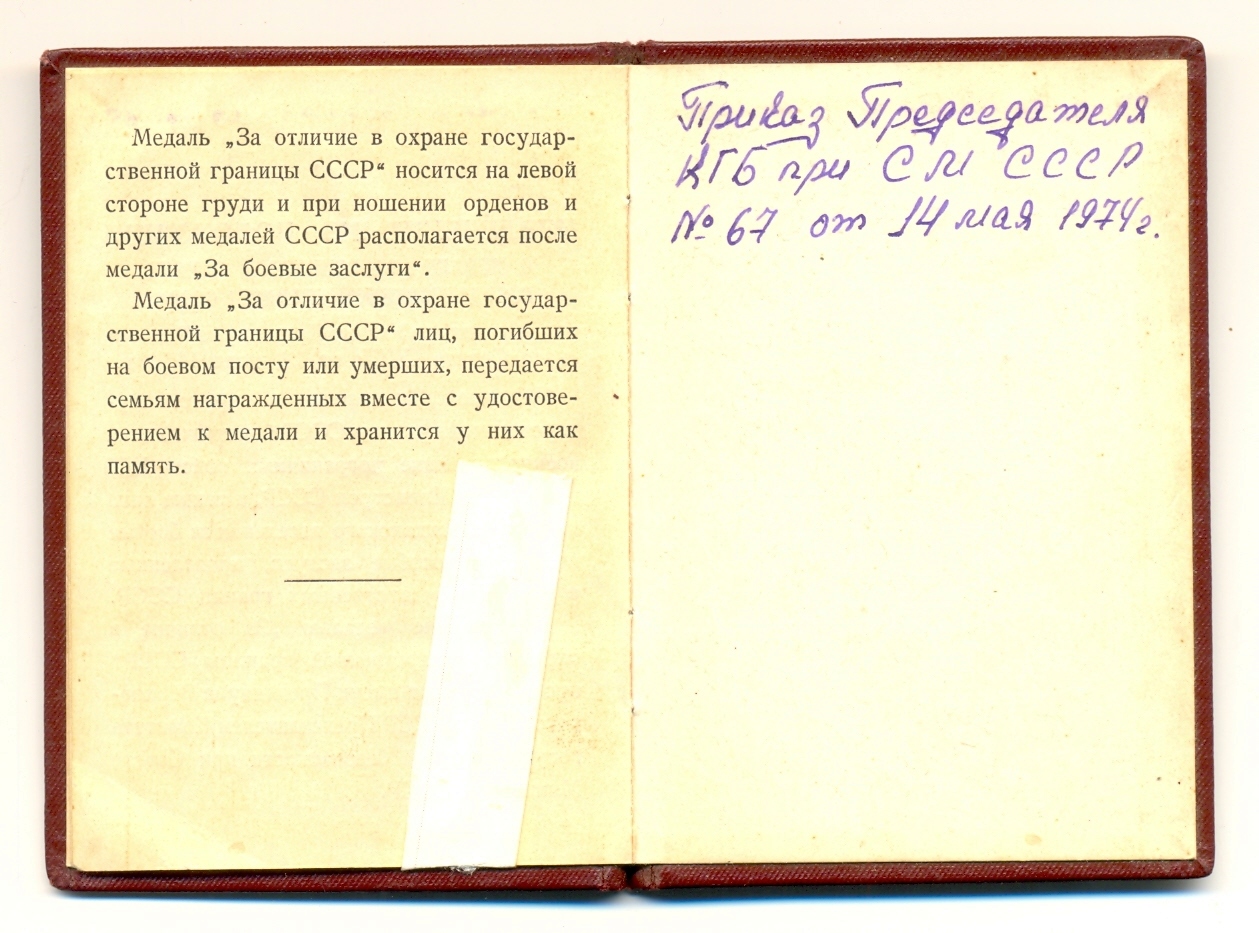 Медаль „За отличие в охране государ-
ственной границы СССР“ носится на левой
стороне груди и при ношении орденов и
других медалей СССР располагается после
медали „За боевые заслуги“.
Медаль „За отличие в охране государ-
ственной границы СССР“ лиц, погибших
на боевом посту или умерших, передается
семьям награжденных вместе с удостове-
рением к медали и хранится у них как
память.
Приказ Председателя
КГБ при СМ СССР
№ 67 от 14 мая 1974г.